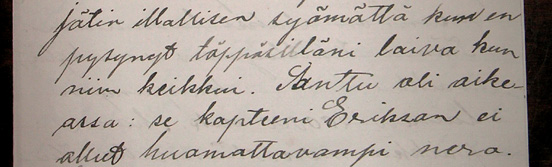 jätin illallisen syömättä kun en
pysynyt töppösilläni laiva kun
niin keikkui. Santtu oli aike-
assa: se kapteeni Erikson ei
ollut huomattavampi nero.